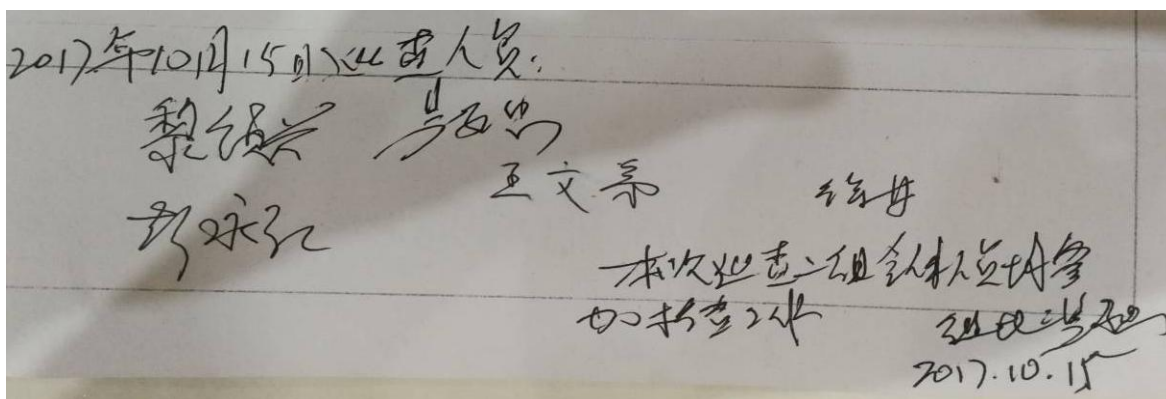 2017年10月15日巡查人员:
黎
王文
徐丹
彭永红
本次巡查二组全体人员均参
加检查工作
组长:
2017.10.15